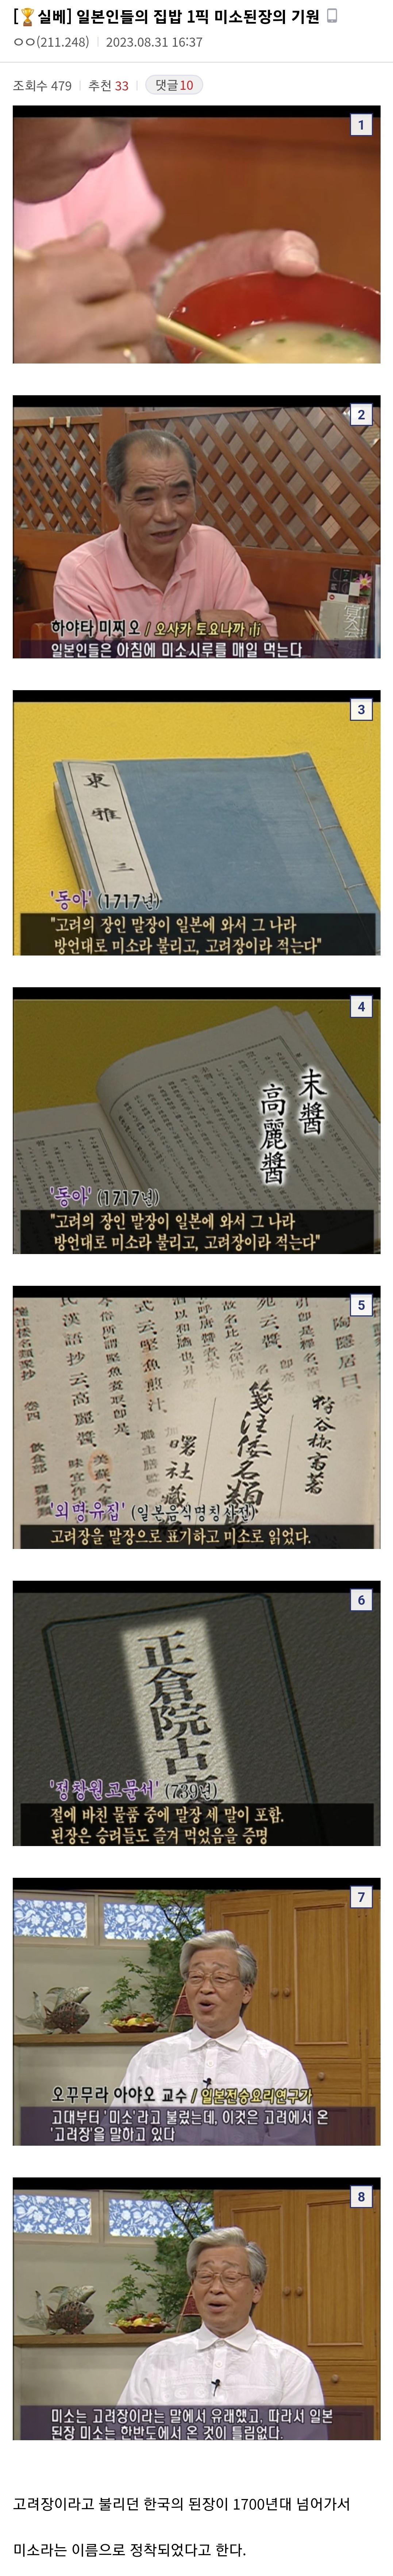 [🏆실베] 일본인들의 집밥 1픽 미소된장의 기원
ㅇㅇ(211.248) 2023.08.31 16:37
조회수 479 추천 33 댓글10
1
2
하야타 미찌오 / 오사카 토요나까 市
일본인들은 아침에 미소시루를 매일 먹는다
3
東雅 三
'동아' (1717년)
"고려의 장인 말장이 일본에 와서 그 나라
방언대로 미소라 불리고, 고려장이라 적는다"
4
末醬
高麗醬
'동아' (1717년)
"고려의 장인 말장이 일본에 와서 그 나라
방언대로 미소라 불리고, 고려장이라 적는다"
5
箋注倭名類
曙社藏
'외명유집' (일본음식명칭사전)
고려장을 말장으로 표기하고 미소로 읽었다.
6
正倉院古文
'정창원고문서' (739년)
절에 바친 물품 중에 말장 세 말이 포함.
된장은 승려들도 즐겨 먹었음을 증명
7
오꾸무라 아야오 교수 / 일본전승요리연구가
고대부터 '미소'라고 불렸는데, 이것은 고려에서 온
'고려장'을 말하고 있다
8
미소는 고려장이라는 말에서 유래했고. 따라서 일본
된장 미소는 한반도에서 온 것이 틀림없다.
고려장이라고 불리던 한국의 된장이 1700년대 넘어가서
미소라는 이름으로 정착되었다고 한다.